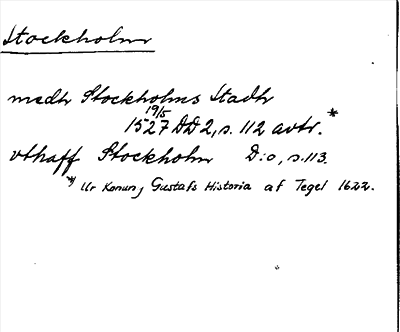 Stockholm
medh Stockholms Stadh
19/5
1527 DD 2, s. 112 avtr. *
vthaff Stockholm D:o, s. 113.
* Ur Konung Gustafs Historia af Tegel 1622.